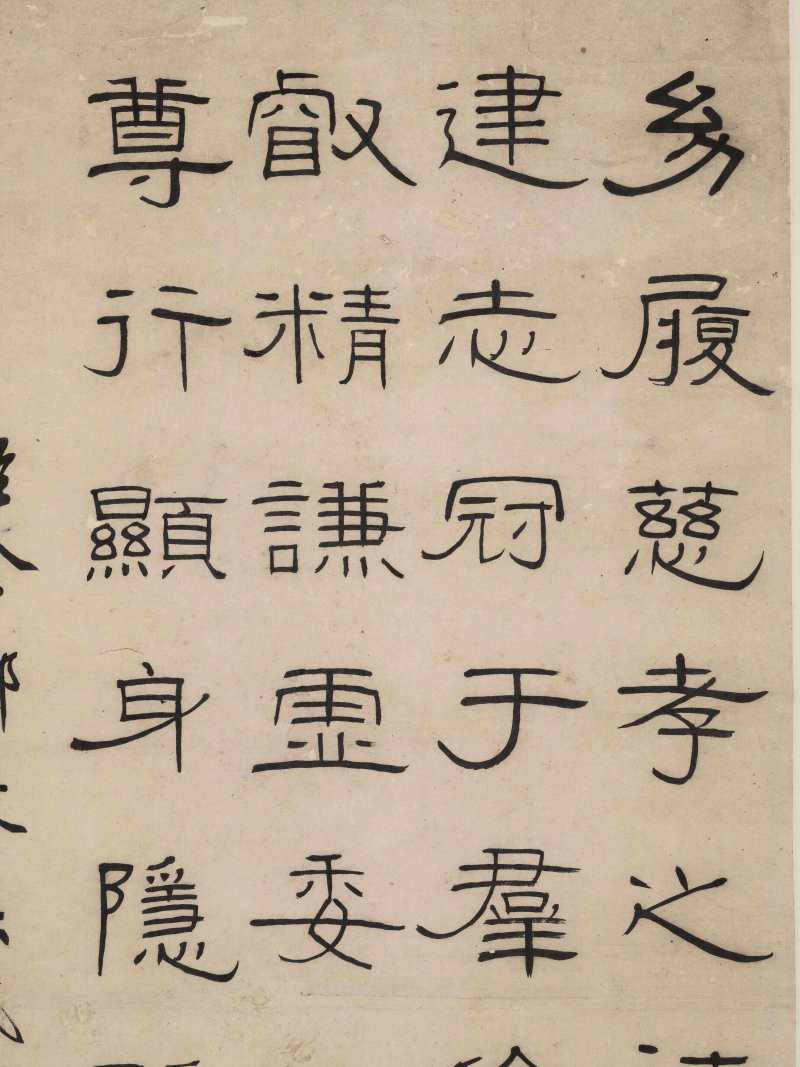 幼履慈孝之
建志冠于羣
叡精謙虛委
尊行顯身隱